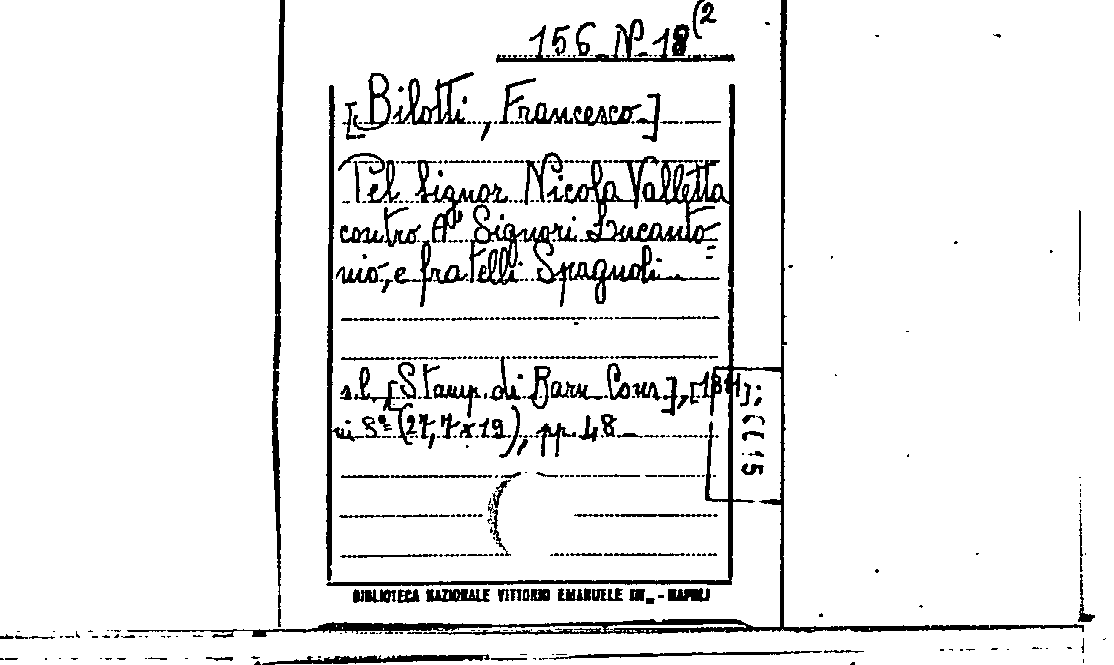 156 N. 18 (2
[Bilotti, Francesco]
Pel Signor Nicola Valletta
contro A' Signori Lucanto=
nio, e fratelli Spagnoli.
s.l. [Stamp. di Barn Cons.],
in 8º (27,7x19), pp. 48
BIBLIOTECA NAZIONALE VITTORIO EMANUELE III - NAPOLI